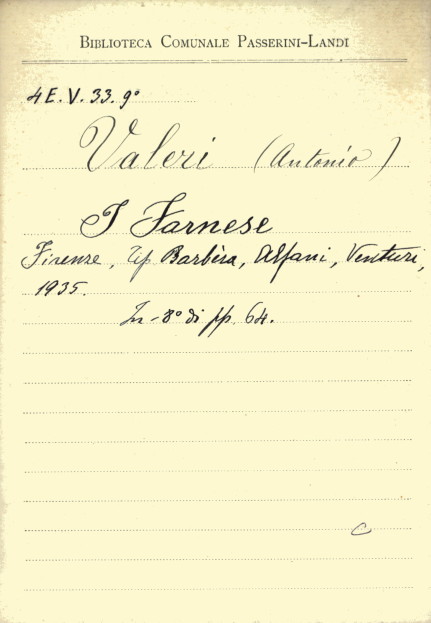 BIBLIOTECA COMUNALE PASSERINI-LANDI
4 E. V. 33. 9°
Valeri (Antonio)
I Farnese
Firenze, Tip Barbèra, Alfani, Venturi,
1935.
In-8° di pp. 64.
C